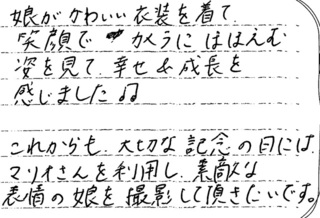 娘がかわいい衣装を着て
笑顔で カメラにほほえむ
姿を見て 幸せ&成長を
感じました♫
これからも、大切な記念の日には、
マリオさんを利用し、素敵な
表情の娘を撮影して頂きたいです。